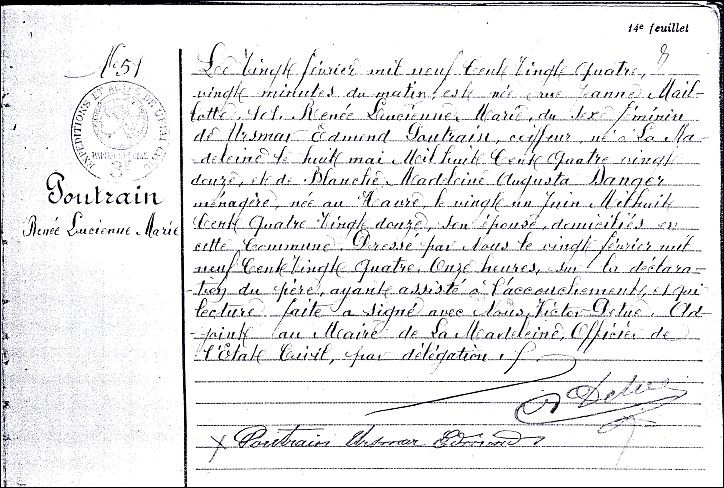 14e feuillet
No 51
Poutrain
Renée Lucienne Marie
Le Vingt février mil neuf Cent Vingt Quatre, 8
vingt minutes du matin, est née, rue Jeanne Mail-
lotte, 101, Renée Lucienne Marie, du sexe féminin
de Ursmar Edmond Poutrain, coiffeur, né à La Ma-
deleine le huit mai Mil huit Cent Quatre vingt
douze, et de Blanche Madeleine Augusta Danger
ménagère, née au Havre, le vingt un Juin Mil huit
Cent Quatre Vingt douze, son épouse, domiciliés en
cette Commune. Dressé par Nous le vingt février mil
neuf Cent Vingt Quatre, Onze heures, sur la déclara-
-tion du père, ayant assisté à l'accouchement, et qui
lecture faite a signé avec Nous, Victor Delue, Ad-
-joint au Maire de La Madeleine, Officier de
l'État Civil, par délégation
Delue
Poutrain Ursmar Edmond